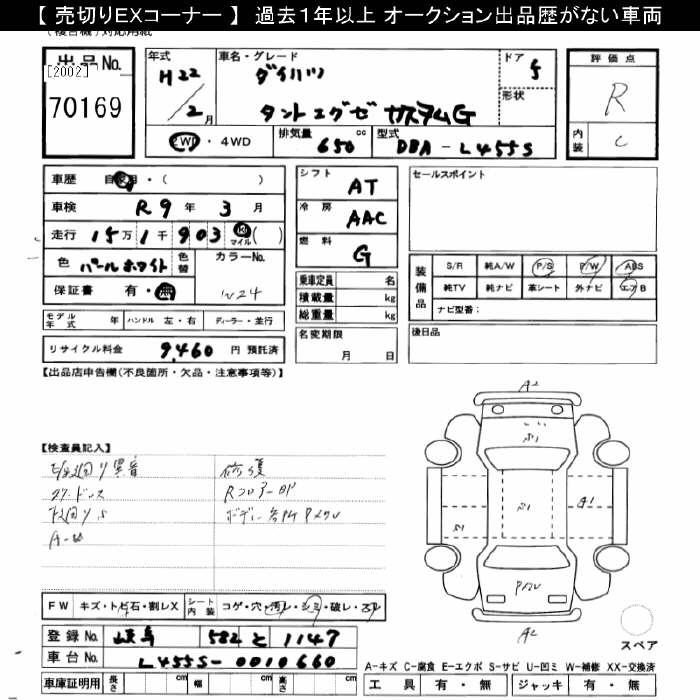 【 売切りEXコーナー 】 過去1年以上 オークション出品歴がない車両
(複合機)対応用紙
出品No. [2002] 70169
年式 H22/2月
車名・グレード ダイハツ
タントエグゼ カスタムG
ドア 5
形状
2WD・4WD
排気量 650 cc
型式 DBA-L455S
評価点 R
内装 C
車歴 自家用・( )
車検 R9年 3月
走行 15万1千903 km マイル( )
色 パールホワイト 色替 カラーNo. W24
保証書 有・無
モデル年式 年 ハンドル 左・右 ディーラー・並行
リサイクル料金 9,460 円 預託済
シフト AT
冷房 AAC
燃料 G
乗車定員 名
積載量 kg
総重量 kg
名変期限 月 日
セールスポイント
装備品 S/R 純A/W P/S P/W ABS
純TV 純ナビ 革シート 外ナビ エアB
ナビ型番:
後日品
【出品店申告欄(不良箇所・欠品・注意事項等)】
【検査員記入】
異音
修復
RフロアーBP
下回りS
FW キズ・トビ石・割レX シート内装 コゲ・穴・汚レ・シミ・破レ・スレ
登録No. 岐阜 582 と 1147
車台No. L455S-0010660
車庫証明用 長さ cm 幅 cm 高さ cm
A2
A1
A2
スペア
A-キズ C-腐食 E-エクボ S-サビ U-凹ミ W-補修 XX-交換済
工具 有・無 ジャッキ 有・無